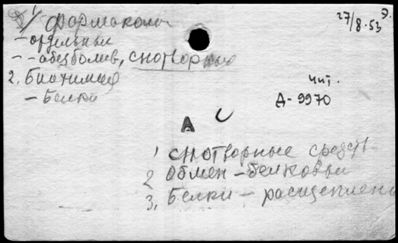 Фармакол
27/8-53 Э.
- отдельный
- обезболев, снотворные
2. Биохимия
- Белки
Чит.
Д-9970
А
1 снотворные средств
2 Обмен - белковый
3, Белки - расщеплени